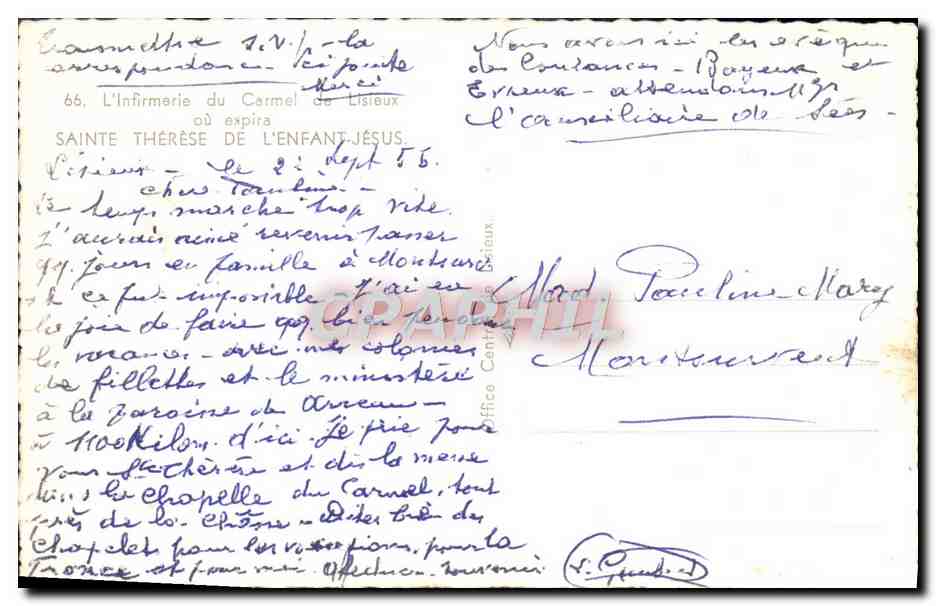 Transmettre S.V.p. la
correspondance ci jointe
Merci
66. L'Infirmerie du Carmel de Lisieux
où expira
SAINTE THÉRÈSE DE L'ENFANT-JÉSUS.
Nous avons ici les evèques
de Coutances - Bayeux et
Evreux - attendons Mgr
l'auxiliaire de Sées -
Lisieux - le 2 Sept 55.
Chère Pauline -
Le temps marche trop vite.
J'aurais aimé revenir passer
qq. jours en famille à Montsurvent
ce fut impossible - J'ai eu
la joie de faire qq. bien pendant
les vacances - avec mes colonies
de fillettes et le ministère
à la paroisse de Arreau -
à 1100 Kilom. d'ici. Je prie pour
vous Ste Thérèse et dis la messe
dans la Chapelle du Carmel, tout
près de la Châsse - Dites bien des
Chapelets pour les vocations, pour la
France et pour moi. Affectueux souvenir
Mad. Pauline Mary
Montsurvent
Office Central de Lisieux.
CPARPHIL